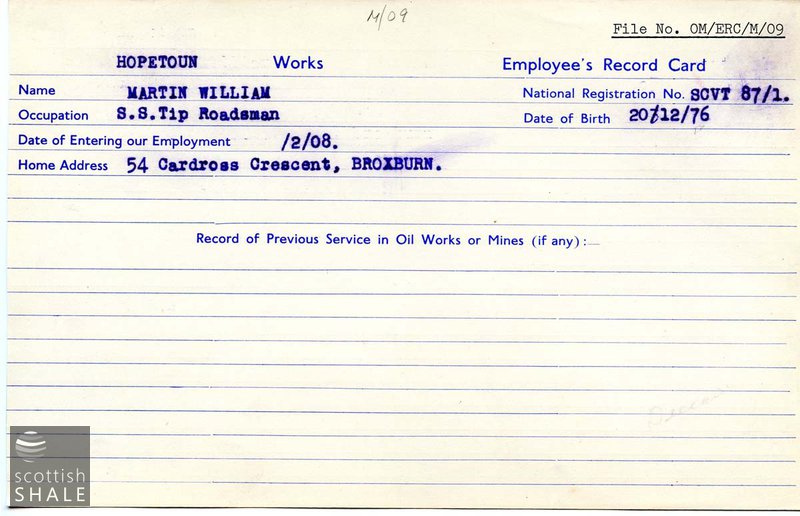 M/09
File No. OM/ERC/M/09
HOPETOUN Works Employee's Record Card
Name MARTIN WILLIAM National Registration No. SCVT 87/1.
Occupation S.S.Tip Roadsman Date of Birth 20/12/76
Date of Entering our Employment /2/08.
Home Address 54 Cardross Crescent, BROXBURN.
Record of Previous Service in Oil Works or Mines (if any):—
scottish
SHALE